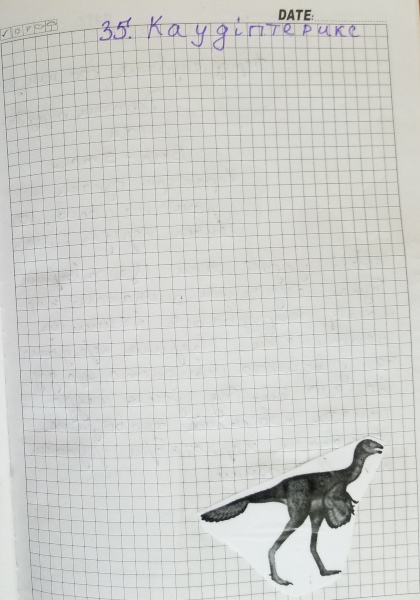 DATE:
35. Каудіптерикс